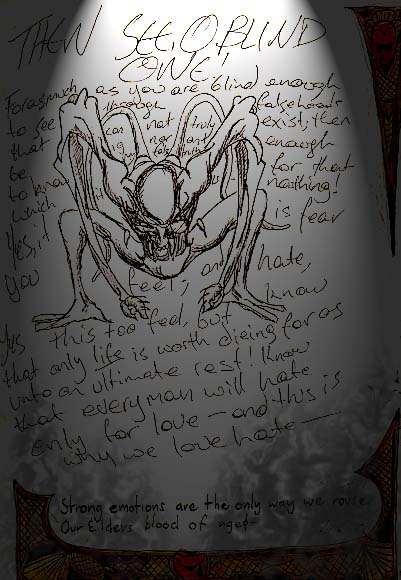 THEN SEE, O, BLIND
ONE,
Forasmuch as you are blind enough
to see through falsehoods
that can not truly exist, then
be enough
to know for that
which is nothing!
Yes, it is fear
you feel, and hate,
this too feel, but know
that only life is worth dieing for as
unto an ultimate rest! Know
that every man will hate
only for love – and this is
why we love hate —
Strong emotions are the only way we rouse
Our Elders blood of age!-